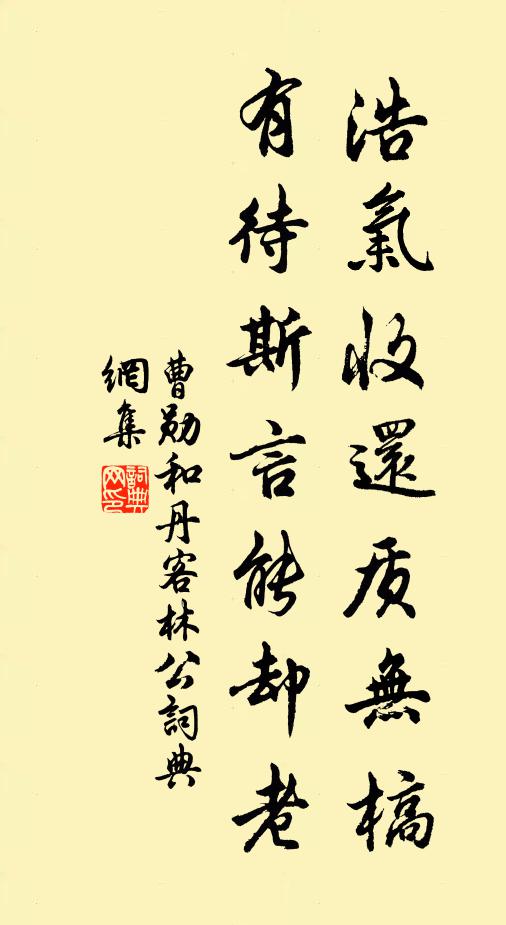 浩氣收還质無槁
有待斯言能却老
曹勛和丹客林公詞典
網集
詞典網印